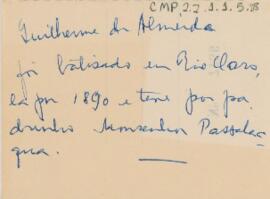 CMP.2.2.1.1.5.28
Guilherme de Almeida
foi batisado em Rio Claro,
la por 1890 e teve por pa
drinho Monsenhor Passalac
qua.